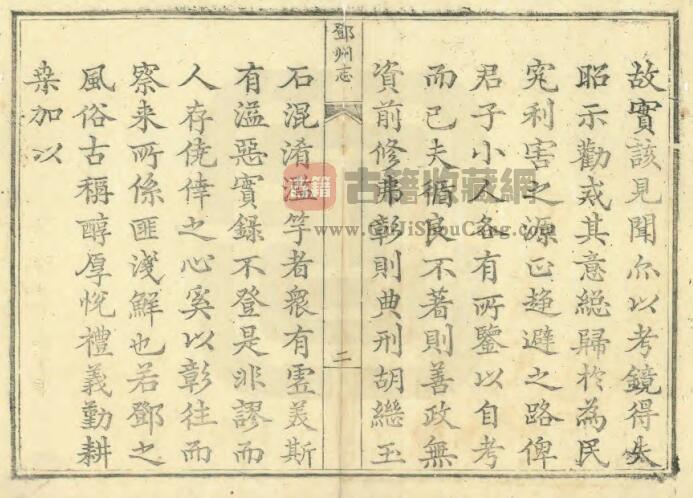 故實該見聞尓以考鏡得失
昭示勸戒其意緫歸於為民
究利害之源正趍避之路俾
君子小人各有所鑒以自考
而已夫循良不著則善政無
資前修弗彰則典刑胡繼玉
鄧州志
二
石混淆濫竽者衆有虛美斯
有溢惡實録不登是非謬而
人存僥倖之心奚以彰往而
察来所係匪淺鮮也若鄧之
風俗古稱醇厚悅禮義勤耕
桒加以
古籍
古籍收藏網
www.GuJiShouCang.com